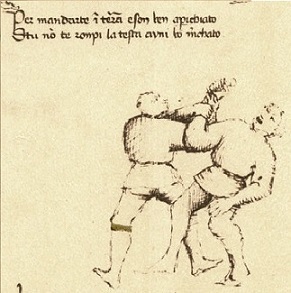 Per mandarte ĩ tẽra e son ben apichiato
Stu nõ te rompi la testa aurai bõ m̃chato